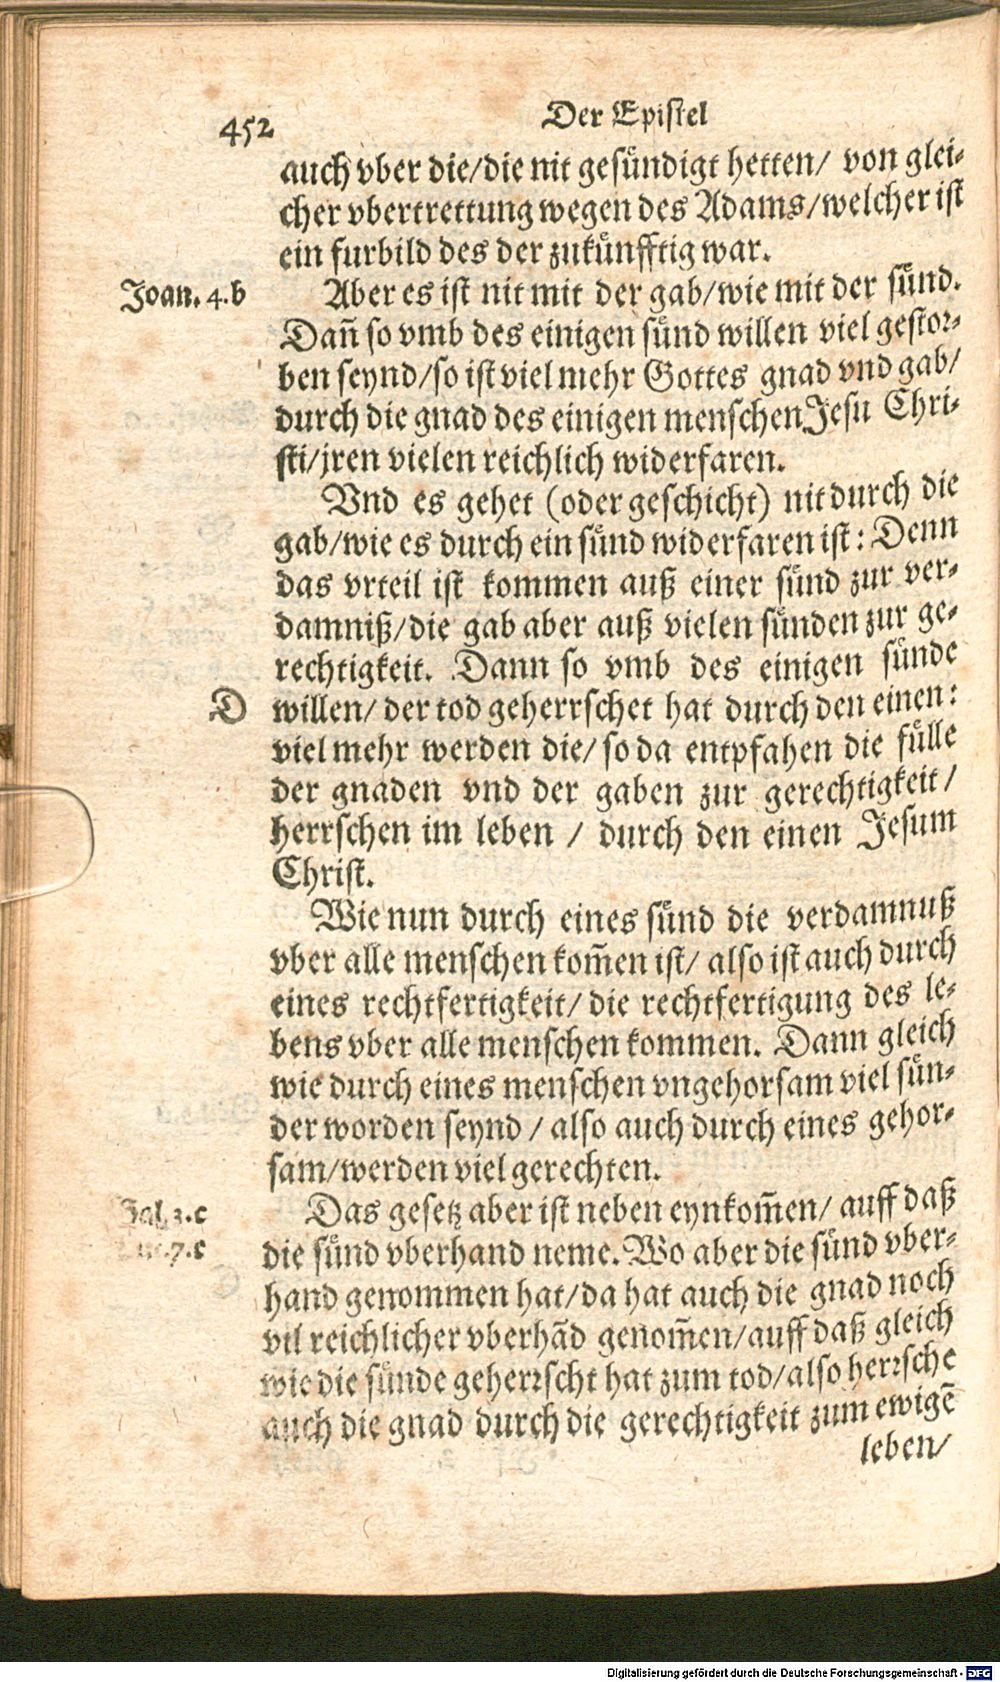 452
Der Epistel
auch vber die/die nit gesündigt hetten/ von glei-
cher vbertrettung wegen des Adams/welcher ist
ein furbild des der zukünfftig war.
Joan. 4.b
Aber es ist nit mit der gab/wie mit der sünd.
Dañ so vmb des einigen sünd willen viel gestor-
ben seynd/so ist viel mehr Gottes gnad vnd gab/
durch die gnad des einigen menschen Jesu Chri-
sti/jren vielen reichlich widerfaren.
Vnd es gehet (oder geschicht) nit durch die
gab/wie es durch ein sünd widerfaren ist: Denn
das vrteil ist kommen auß einer sünd zur ver-
damniß/die gab aber auß vielen sünden zur ge-
rechtigkeit. Dann so vmb des einigen sünde
D
willen/ der tod geherrschet hat durch den einen:
viel mehr werden die/ so da entpfahen die fülle
der gnaden vnd der gaben zur gerechtigkeit/
herrschen im leben / durch den einen Jesum
Christ.
Wie nun durch eines sünd die verdamnuß
vber alle menschen kom̃en ist/ also ist auch durch
eines rechtfertigkeit/ die rechtfertigung des le-
bens vber alle menschen kommen. Dann gleich
wie durch eines menschen vngehorsam viel sün-
der worden seynd / also auch durch eines gehor-
sam/werden viel gerechten.
Gal. 3.c
7.c
Das gesetz aber ist neben eynkom̃en/ auff daß
die sünd vberhand neme. Wo aber die sünd vber-
hand genommen hat/da hat auch die gnad noch
vil reichlicher vberhãd genom̃en/auff daß gleich
wie die sünde geherrscht hat zum tod/also herrsche
auch die gnad durch die gerechtigkeit zum ewigẽ
leben/
Digitalisierung gefördert durch die Deutsche Forschungsgemeinschaft - DFG